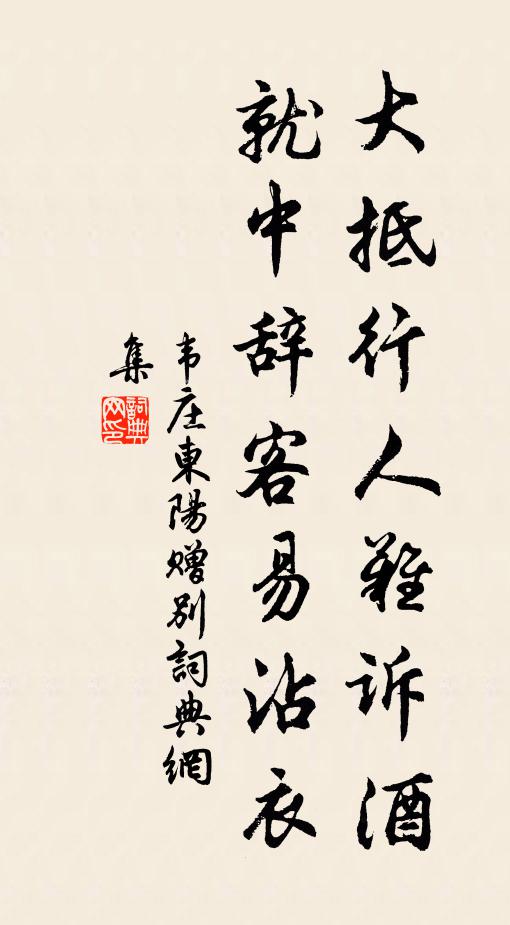 大抵行人难诉酒
就中辞客易沾衣
韦庄東陽赠别詞典網
集
詞典網印